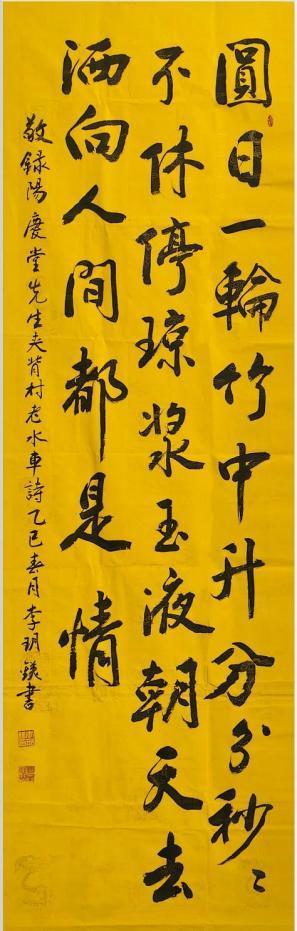 圓日一輪竹中升分分秒〻
不休停琼浆玉液朝天去
洒向人間都是情
敬録陽慶堂先生夾背村老水車詩乙巳春月李玥鋑書